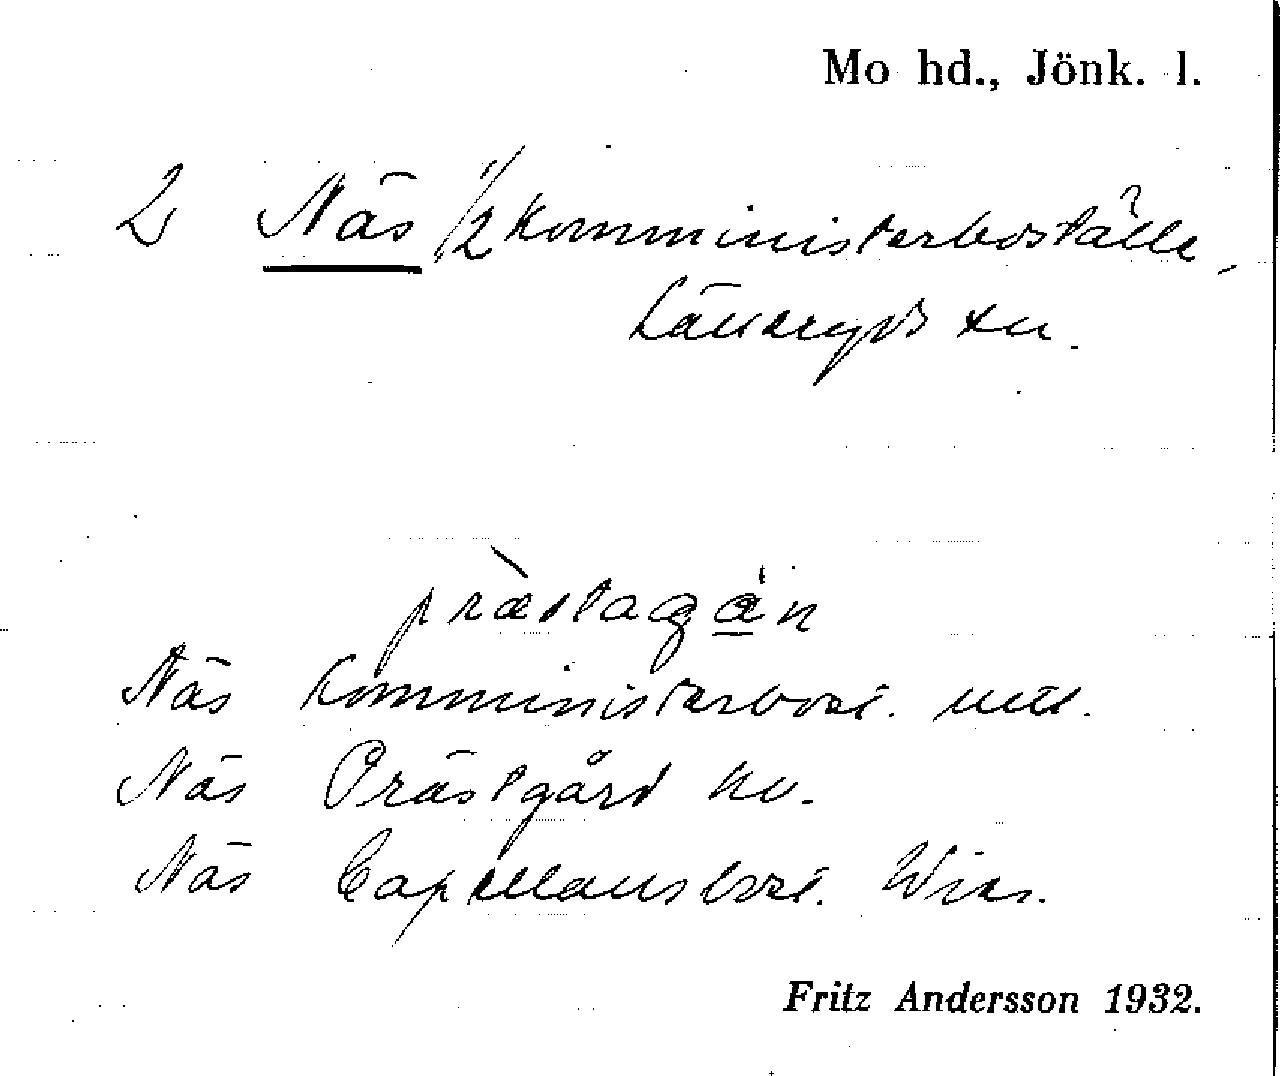 Mo hd., Jönk. l.
2 Näs 1/2 komministerboställe,
Källeryds sn.
prästagån
Näs Komministerbost.
Näs Prästgård
Näs Capellansbost. Wies.
Fritz Andersson 1932.